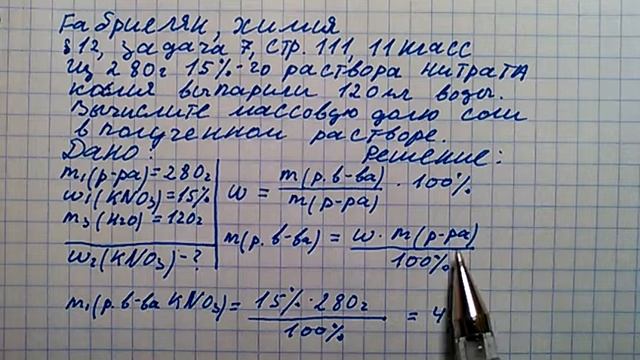 Габриелян, химия
§12, задача 7, стр. 111, 11 класс
Из 280г 15%-го раствора нитрата
калия выпарили 120мл воды.
Вычислите массовую долю соли
в полученном растворе.
Дано: Решение:
m₁(р-ра)=280г
w₁(KNO₃)=15%
m₃(H₂O)=120г
w₂(KNO₃)-?
w = m(р.в-ва) / m(р-ра) · 100%
m(р.в-ва) = w · m(р-ра) / 100%
m₁(р.в-ва KNO₃) = 15% · 280г / 100% = 4